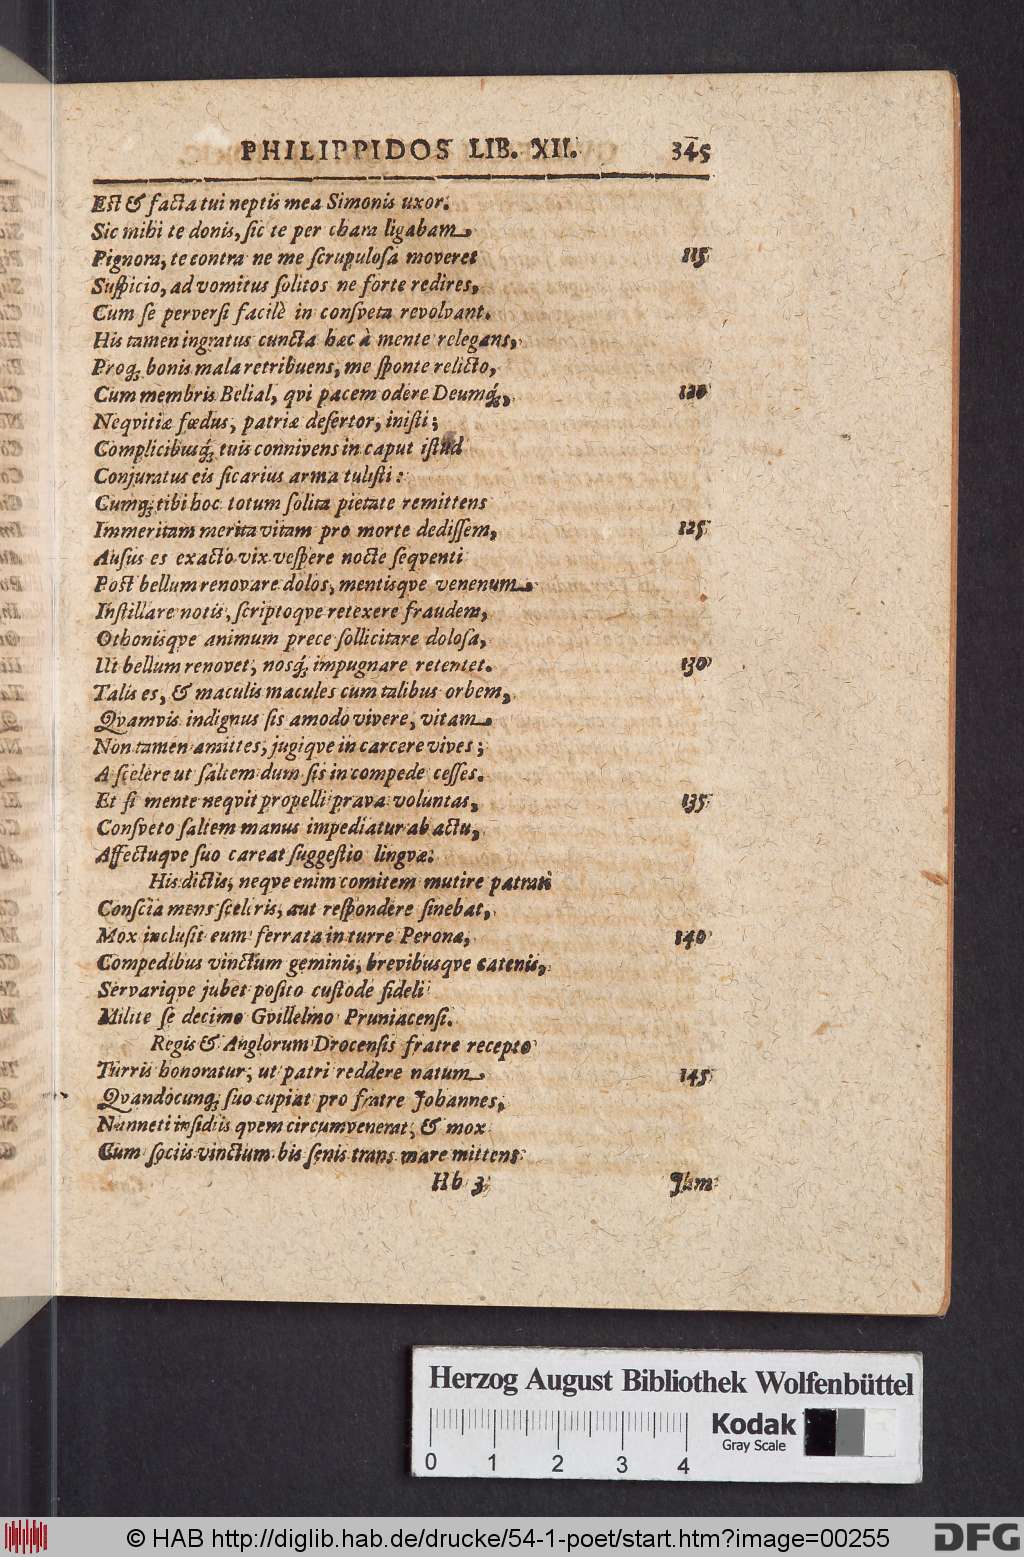 PHILIPPIDOS LIB. XII. 345
Est & facta tui neptis mea Simonis uxor.
Sic mihi te donis, sic te per chara ligabam
Pignora, te contra ne me scrupulosa moveret 115
Suspicio, ad vomitus solitos ne forte redires,
Cum se perversi facilè in consveta revolvant.
His tamen ingratus cuncta hæc à mente relegans,
Proq; bonis mala retribuens, me sponte relicto,
Cum membris Belial, qvi pacem odere Deumq́;, 120
Neqvitiæ fœdus, patriæ desertor, inisti;
Complicibusq́; tuis connivens in caput istud
Conjuratus eis sicarius arma tulisti:
Cumq; tibi hoc totum solita pietate remittens
Immeritam merita vitam pro morte dedissem, 125
Ausus es exacto vix vespere nocte seqventi
Post bellum renovare dolos, mentisqve venenum
Instillare notis, scriptoqve retexere fraudem,
Othonisqve animum prece sollicitare dolosa,
Ut bellum renovet, nosq́; impugnare retentet. 130
Talis es, & maculis macules cum talibus orbem,
Qvamvis indignus sis amodo vivere, vitam
Non tamen amittes, jugiqve in carcere vives;
A scelere ut saltem dum sis in compede cesses.
Et si mente neqvit propelli prava voluntas, 135
Consveto saltem manus impediatur ab actu,
Affectuqve suo careat suggestio lingvæ.
His dictis, neqve enim comitem mutire patrati
Conscia mens sceleris, aut respondere sinebat,
Mox inclusit eum ferrata in turre Peronæ, 140
Compedibus vinctum geminis, brevibusqve catenis,
Servariqve jubet posito custode fideli
Milite se decimo Gvillelmo Pruniacensi.
Regis & Anglorum Drocensis fratre recepto
Turris honoratur, ut patri reddere natum 145
Qvandocunq; suo cupiat pro fratre Johannes,
Nanneti insidiis qvem circumvenerat, & mox
Cum sociis vinctum bis senis trans mare mittens
Hh 3 Jam
Herzog August Bibliothek Wolfenbüttel
Kodak
Gray Scale
0 1 2 3 4
© HAB http://diglib.hab.de/drucke/54-1-poet/start.htm?image=00255
DFG